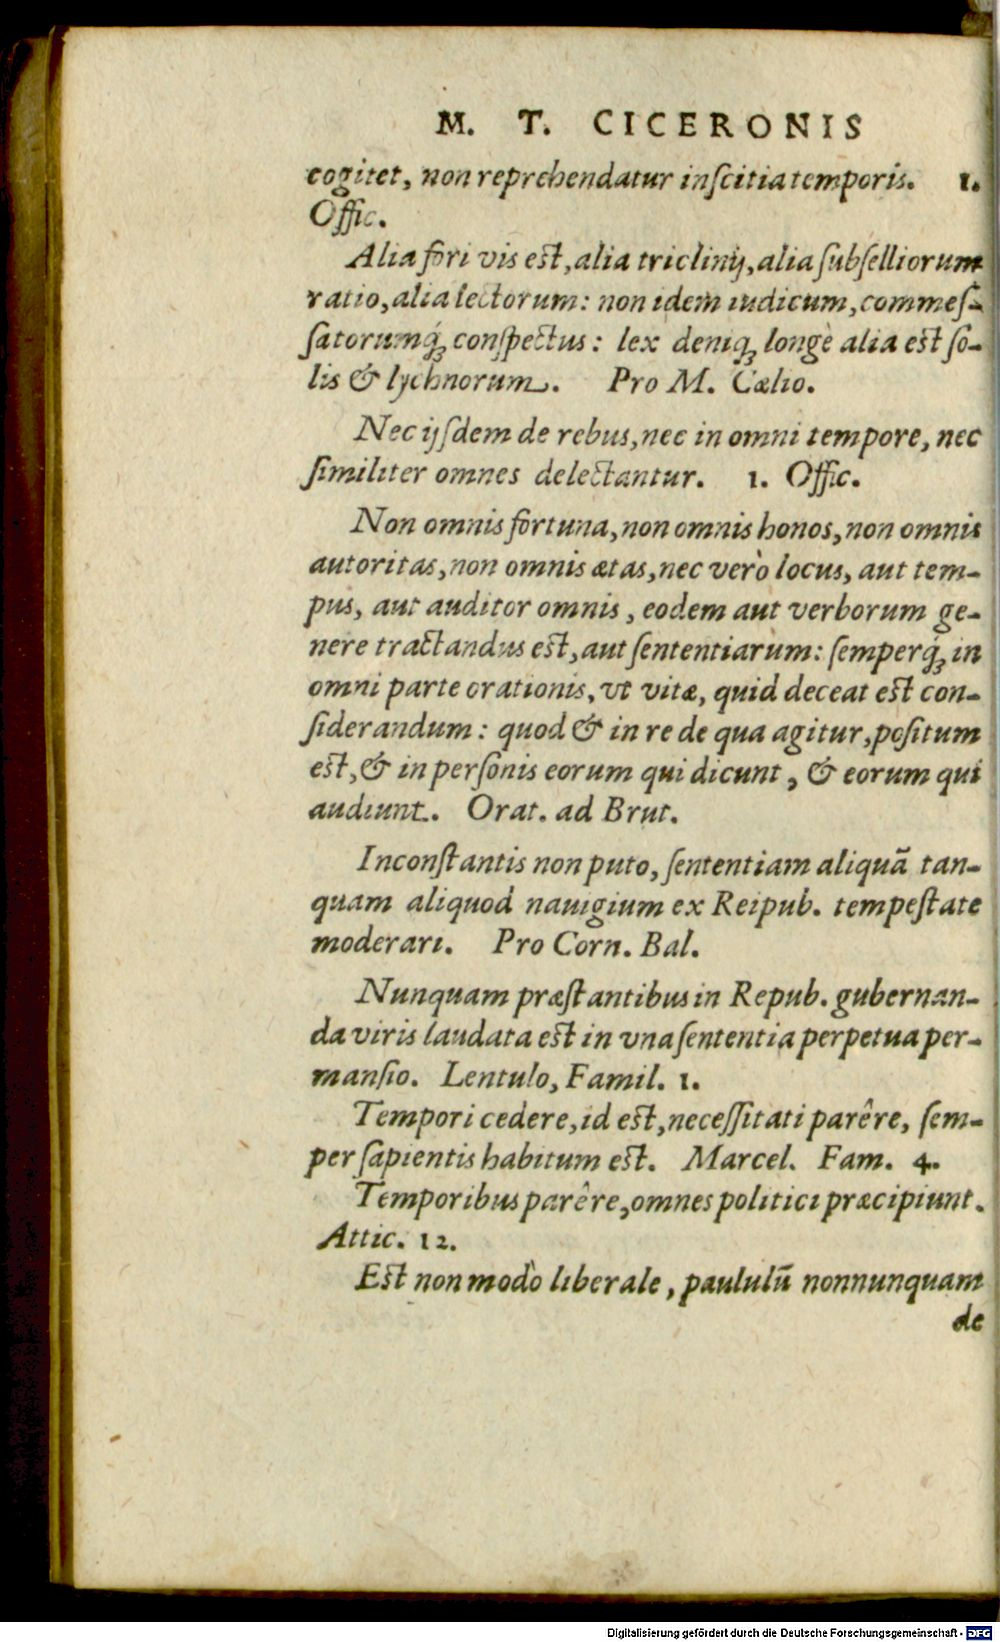 M. T. CICERONIS
cogitet, non reprehendatur inſcitia temporis. 1.
Offic.
Alia fori vis eſt, alia triclinij, alia ſubſelliorum
ratio, alia lectorum: non idem iudicum, commeſ-
ſatorumq́ꝫ conſpectus: lex deniqꝫ longè alia eſt ſo-
lis & lychnorum. Pro M. Cælio.
Nec ijſdem de rebus, nec in omni tempore, nec
ſimiliter omnes delectantur. 1. Offic.
Non omnis fortuna, non omnis honos, non omnis
autoritas, non omnis ætas, nec verò locus, aut tem-
pus, aut auditor omnis, eodem aut verborum ge-
nere tractandus eſt, aut ſententiarum: ſemperq́ꝫ in
omni parte orationis, vt vitæ, quid deceat eſt con-
ſiderandum: quod & in re de qua agitur, poſitum
eſt, & in perſonis eorum qui dicunt, & eorum qui
audiunt. Orat. ad Brut.
Inconſtantis non puto, ſententiam aliquã tan-
quam aliquod nauigium ex Reipub. tempeſtate
moderari. Pro Corn. Bal.
Nunquam præſtantibus in Repub. gubernan-
da viris laudata eſt in vna ſententia perpetua per-
manſio. Lentulo, Famil. 1.
Tempori cedere, id eſt, neceſſitati parêre, ſem-
per ſapientis habitum eſt. Marcel. Fam. 4.
Temporibus parêre, omnes politici præcipiunt.
Attic. 12.
Eſt non modò liberale, paululũ nonnunquam
de
Digitalisierung gefördert durch die Deutsche Forschungsgemeinschaft - DFG